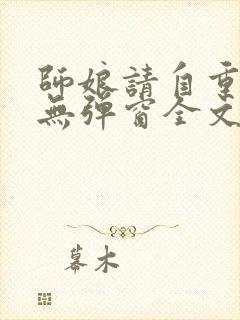 師娘請自重
無彈窗全文
幕木